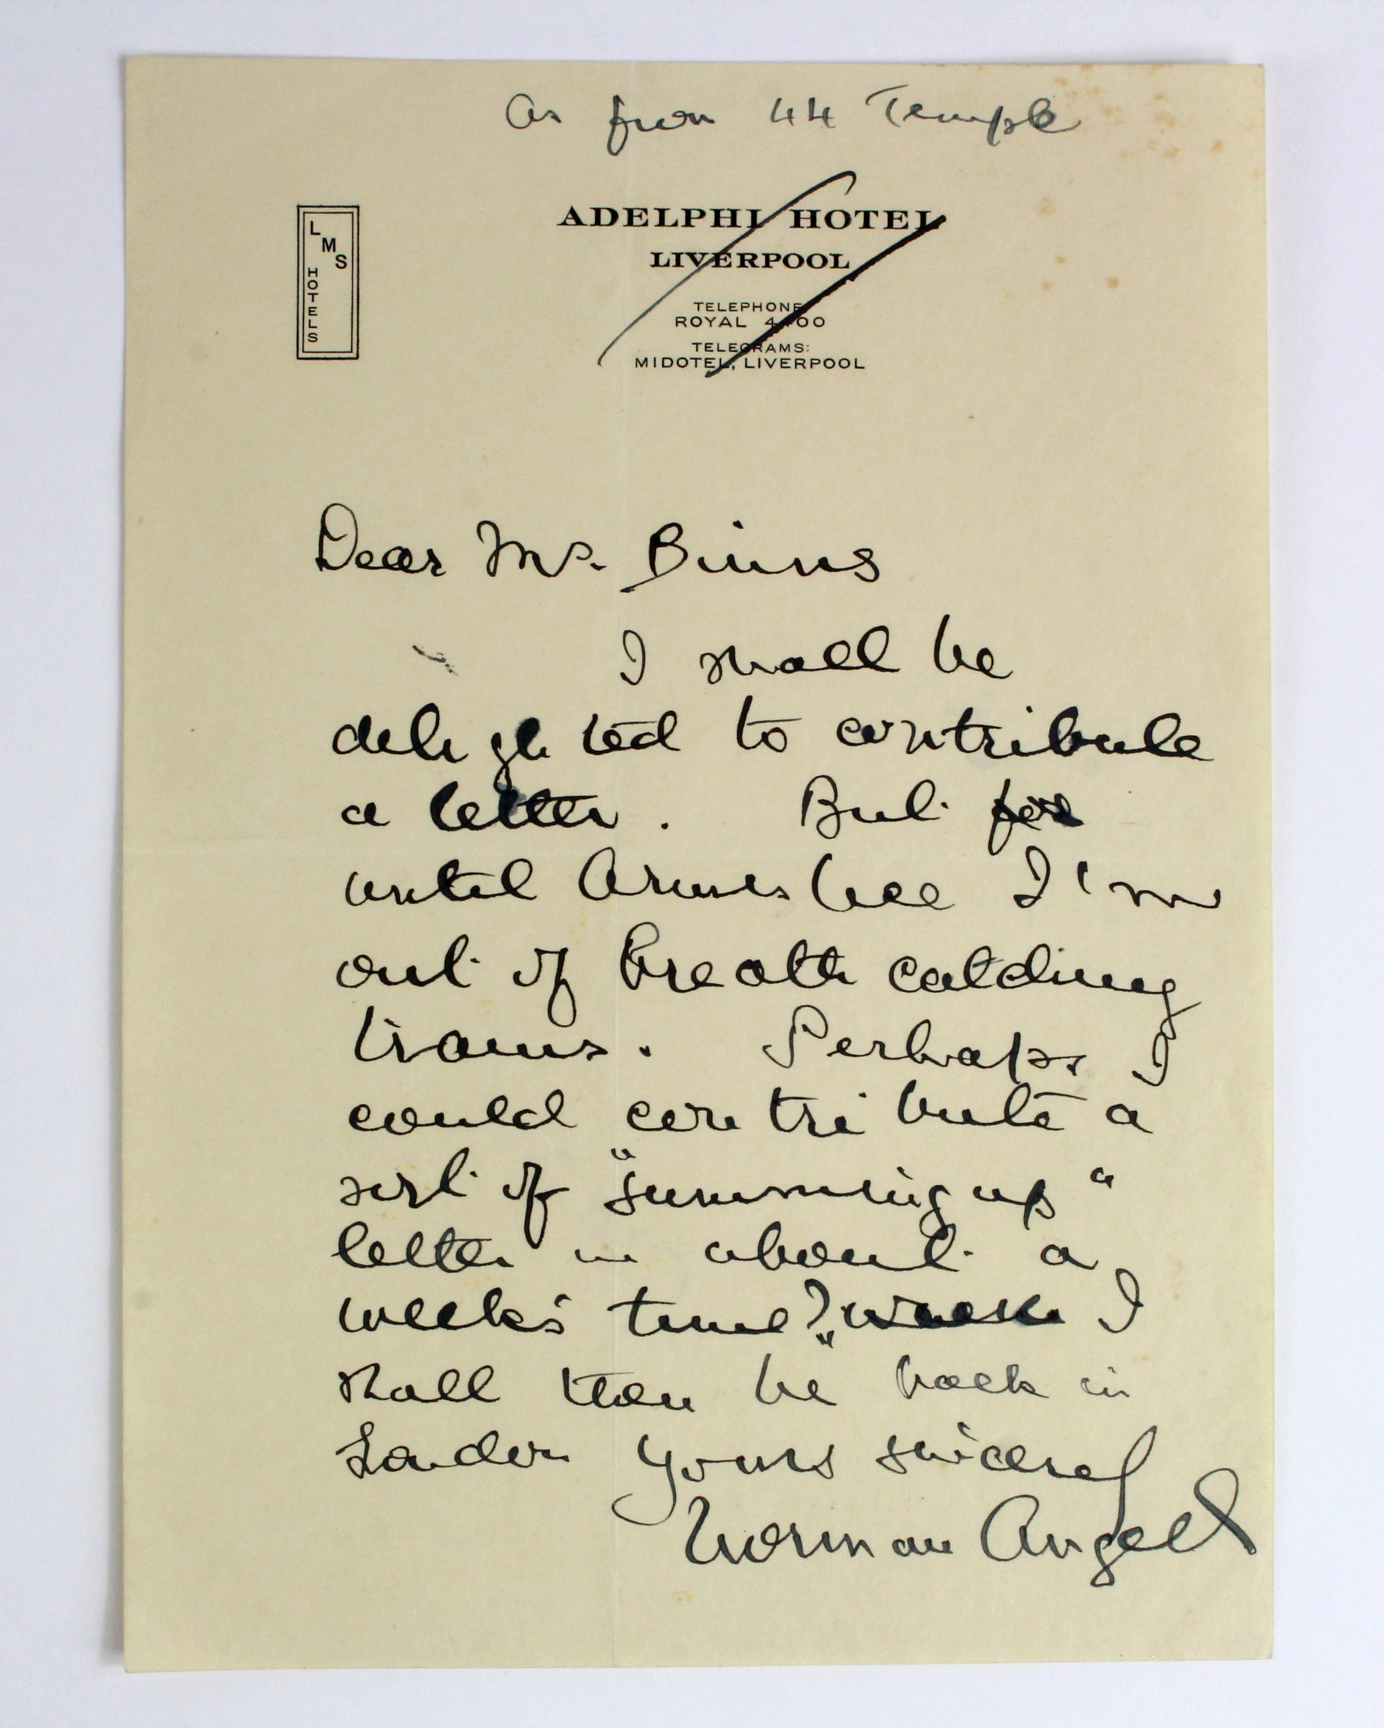 as from 44 Temple
LMS HOTELS
ADELPHI HOTEL
LIVERPOOL
TELEPHONE
ROYAL 4400
TELEGRAMS:
MIDOTEL, LIVERPOOL
Dear Mr. Binns
I shall be
delighted to contribute
a letter. But for
until Armistice I'm
out of breath catching
trains. Perhaps I
could contribute a
sort of "summing up"
letter in about a
week's time? I
shall then be back in
London Yours sincerely
Norman Angell